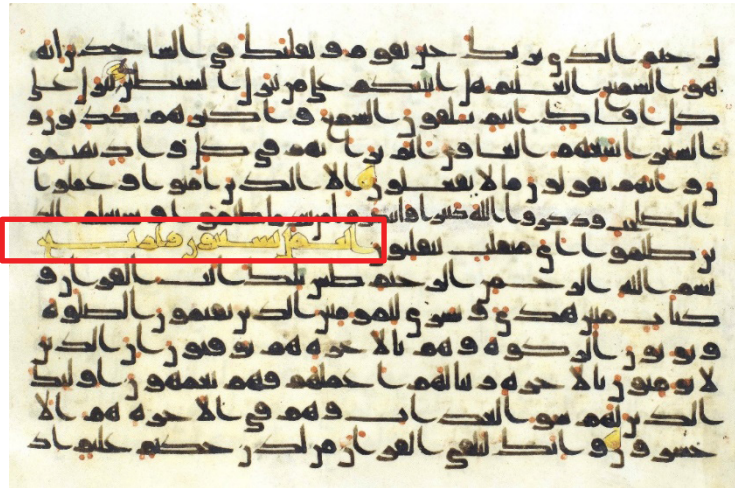 لرحيم الذي يريك حين تقوم وتقلبك في الساجدين انه
هو السميع العليم هل انبئكم على من تنزل الشيطين تنزل على
كل افاك اثيم يلقون السمع واكثرهم كذبون و
الشعرا يتبعهم الغاون الم تر انهم في كل واد يهيمو
ن وانهم يقولون ما لا يفعلون الا الذين امنوا وعملوا
الصلحت وذكروا الله كثيرا وانتصروا من بعد ما ظلموا وسيعلم الذ
ين ظلموا اي منقلب ينقلبون النمل تسعون
بسم الله الرحمن الرحيم طس تلك ايت القران و
كتاب مبين هدى وبشرى للمومنين الذين يقيمون الصلوة
ويوتون الزكوة وهم بالاخرة هم يوقنون ان الذين
لا يومنون بالاخرة زينا لهم اعملهم فهم يعمهون اوليك
الذين لهم سو العذاب وهم في الاخرة هم الا
خسرون وانك لتلقى القران من لدن حكيم عليم اذ